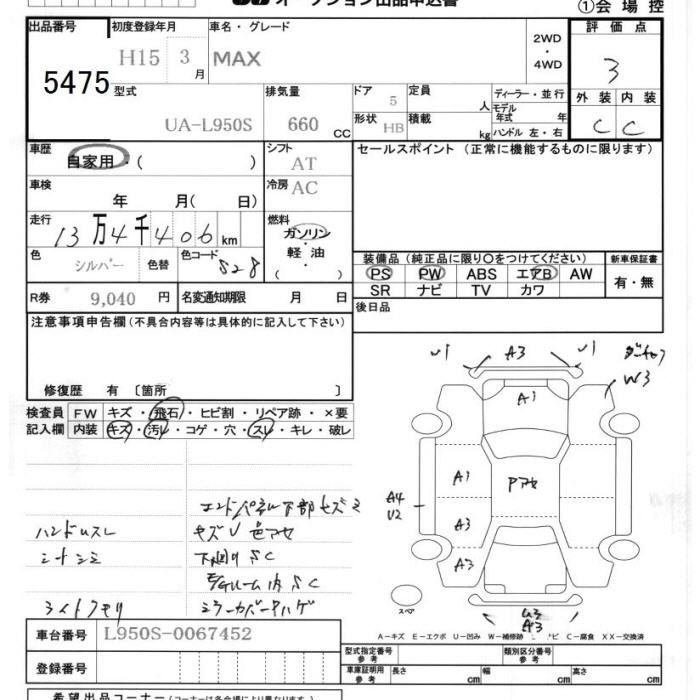 オークション出品申込書
①会場控
出品番号 初度登録年月 車名・グレード 2WD・4WD 評価点
5475 H15 3月 MAX 3
型式 排気量 ドア 定員 ディーラー・並行 外装 内装
UA-L950S 660cc 5 人 モデル年式 年 C C
形状 積載 ハンドル 左・右
HB kg
車歴 シフト セールスポイント(正常に機能するものに限ります)
自家用・( ) AT
車検 冷房
年 月( 日) AC
走行 燃料
13万4千406km ガソリン・軽油( )
色 色替 色コード
シルバー S28
装備品(純正品に限り○をつけてください) 新車保証書
PS PW ABS エアB AW 有・無
SR ナビ TV カワ
R券 9,040円 名変通知期限 月 日 後日品
注意事項申告欄(不具合内容等は具体的に記入して下さい)
修復歴 有 〔箇所 〕
検査員記入欄 FW キズ・飛石・ヒビ割・リペア跡・×要
内装 キズ・汚レ・コゲ・穴・スレ・キレ・破レ
エンドパネル下部キズミ
ハンドルスレ キズU色アセ
シートシミ 下廻りSC
フレーム内SC
ライトクモリ ミラーカバーハゲ
A3
U1
U1
W3
A1
A1
Pアセ
A4
U2
A3
A3
スペア
A3
A-キズ E-エクボ U-凹み W-補修跡 C-腐食 XX-交換済
車台番号 L950S-0067452
登録番号
型式指定番号 参考 類別区分番号 参考
車庫証明用 参考 長さ cm 幅 cm 高さ cm
希望出品コーナー(コーナーは各会場により異なります。)